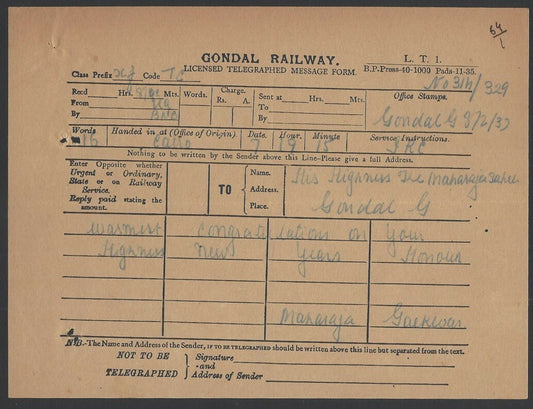 64
1
GONDAL RAILWAY. L. T. 1.
LICENSED TELEGRAPHED MESSAGE FORM. B.P.Press-40-1000 Pads-11-35.
Class Prefix Code T.C
No 314/329
Recd Hrs. Mts. Words. Charge. Sent at Hrs. Mts. Office Stamps.
From Rs. A. To
By By
Gondal G 8/2/37
Words Handed in at (Office of Origin) Date. Hour. Minute Service Instructions.
16 Cairo 7 19 15
Nothing to be written by the Sender above this Line-Please give a full Address.
Enter Opposite whether
Urgent or Ordinary,
State or on Railway
Service.
Reply paid stating the
amount.
TO
Name. His Highness The Maharaja Saheb
Address.
Place. Gondal G
Warmest Congratulations on Your
Highness New Years Honour
Maharaja Gaekwar
N.B.-The Name and Address of the Sender, IF TO BE TELEGRAPHED should be written above this line but separated from the text.
NOT TO BE
TELEGRAPHED
Signature
and
Address of Sender